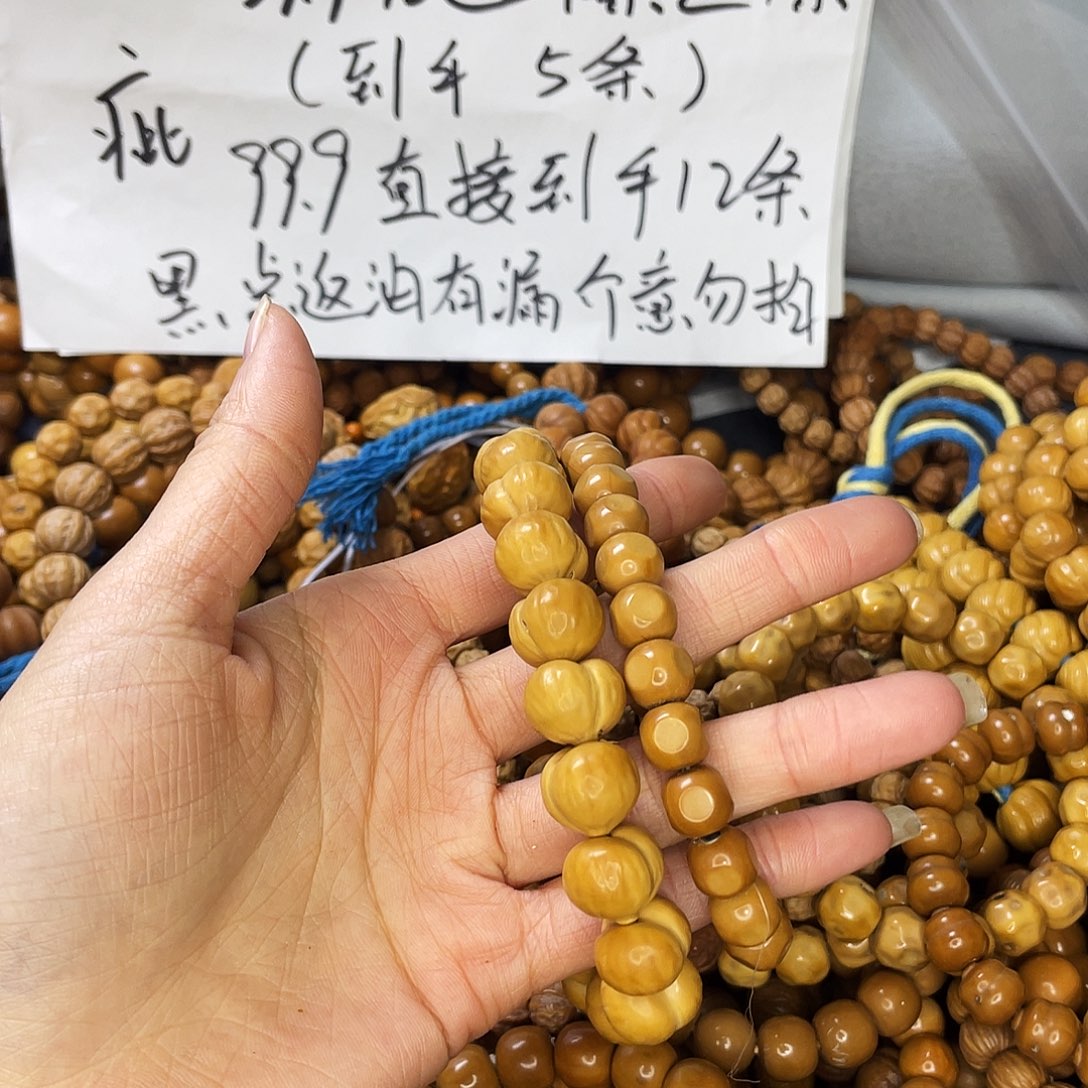 (到手 5条)
疵
99.9直接到手12条
黑点返油有漏介意勿拍